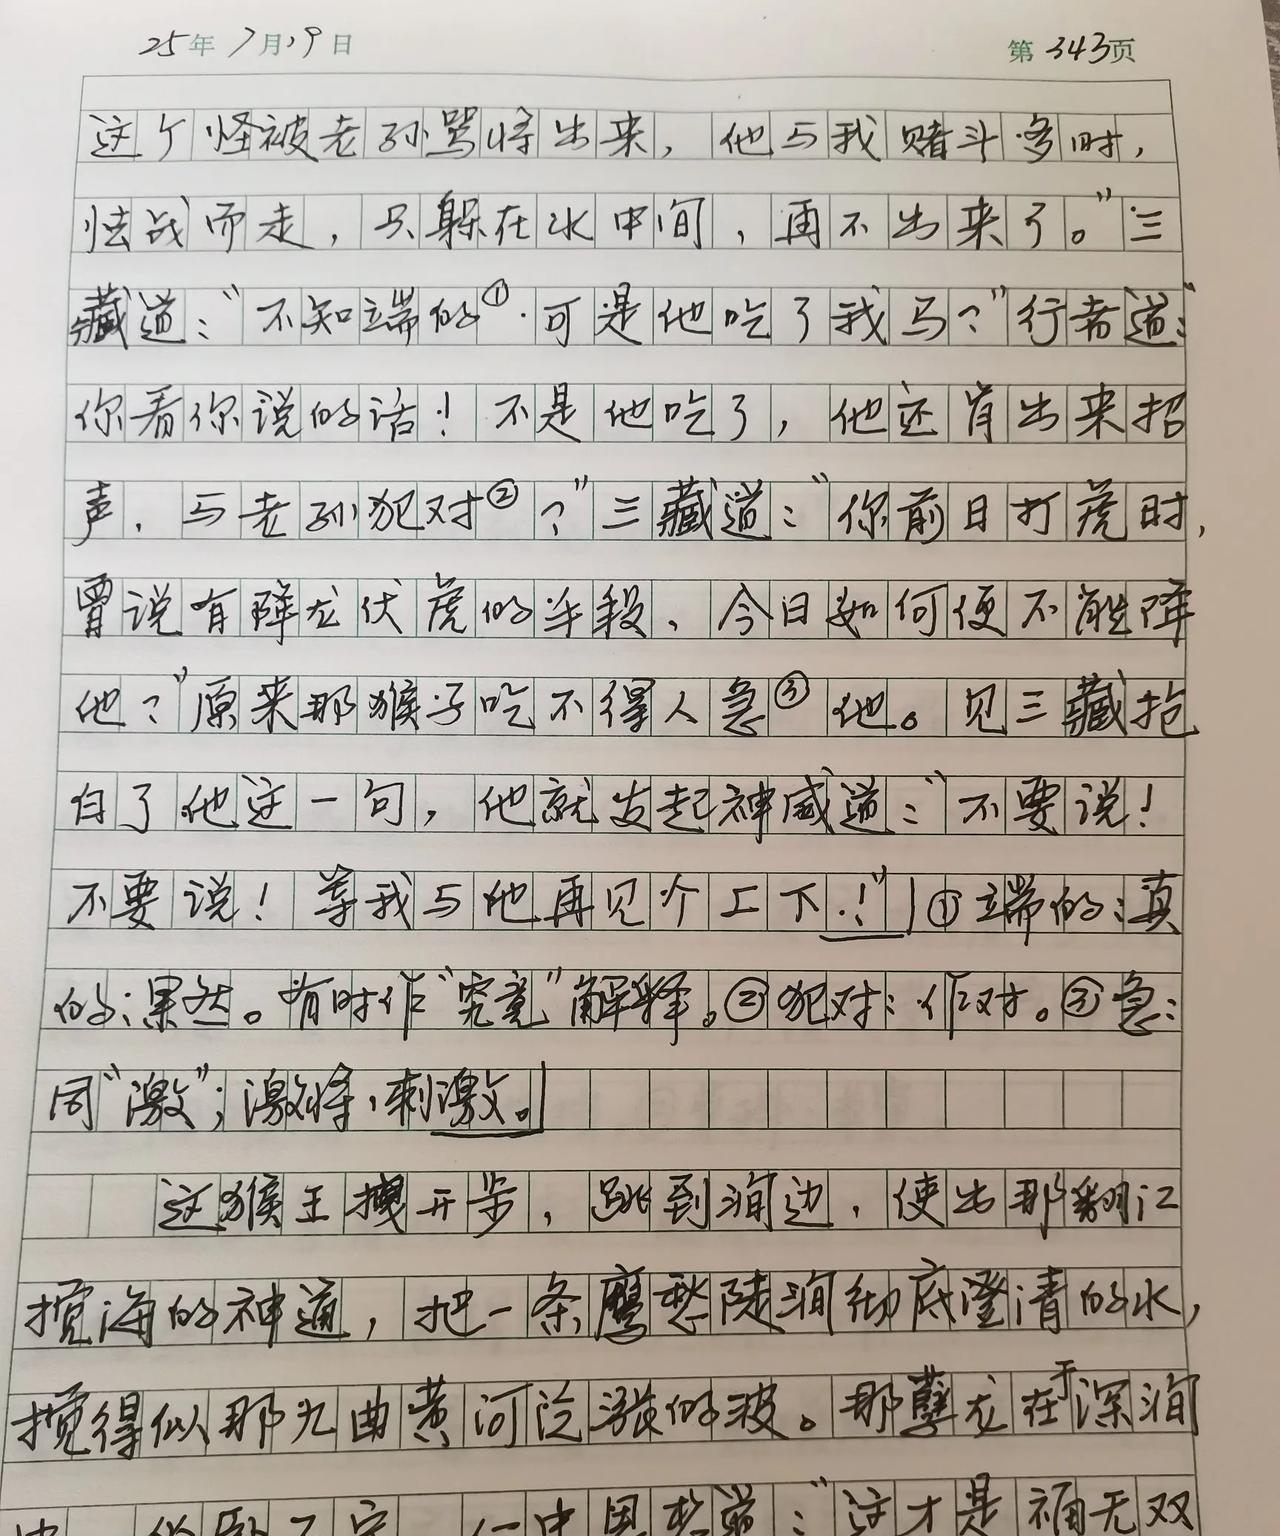 25年7月19日 第343页
这个怪被老孙骂将出来，他与我赌斗多时，
怯战而走，只躲在水中间，再不出来了。”三
藏道：“不知端的①，可是他吃了我马？”行者道：“
你看你说的话！不是他吃了，他还肯出来招
声，与老孙犯对②？”三藏道：“你前日打虎时，
曾说有降龙伏虎的手段，今日如何便不能降
他？”原来那猴子吃不得人急③他。见三藏抢
白了他这一句，他就发起神威道：“不要说！
不要说！等我与他再见个上下！”①端的：真
的；果然。有时作“究竟”解释。②犯对：作对。③急：
同“激”；激将，刺激。
这猴王拽开步，跳到涧边，使出那翻江
搅海的神通，把一条鹰愁陡涧彻底澄清的水，
搅得似那九曲黄河泛涨的波。那孽龙在于深涧
中，心中思想道：“这才是祸无双